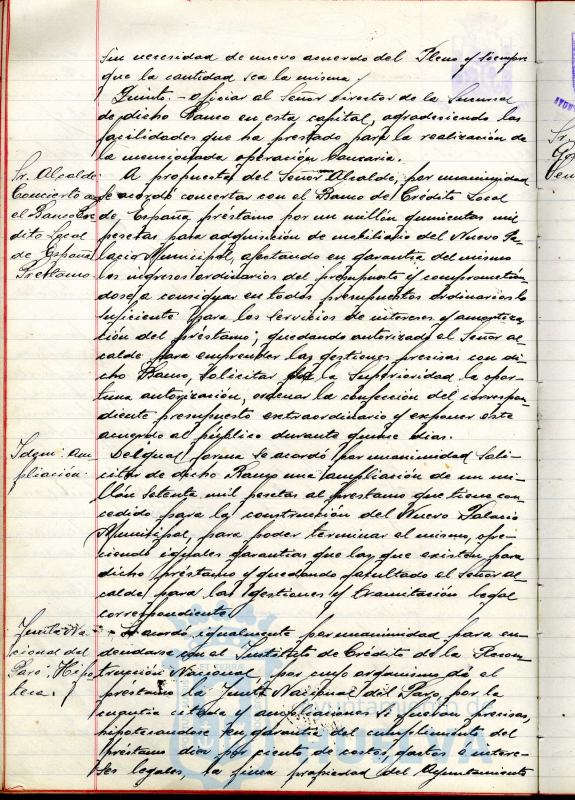 sin necesidad de nuevo acuerdo del Pleno y siempre
que la cantidad sea la misma.
Quinto.- Oficiar al Señor Director de la Sucursal
de dicho Banco en esta capital, agradeciendo las
facilidades que ha prestado para la realización de
la mencionada operación bancaria.
Sr. Alcalde
Concierto con
el Banco Cré
dito Local
de España
Préstamo.
A propuesta del Señor Alcalde, por unanimidad
se acordó concertar con el Banco de Crédito Local
de España, préstamo por un millón quinientas mil
pesetas para adquisición de mobiliario del Nuevo Pa-
lacio Municipal, afectando en garantía del mismo
los ingresos ordinarios del presupuesto y comprometién
dose a consignar en todos presupuestos ordinarios lo
suficiente para los servicios de intereses y amortiza
ción del préstamo; quedando autorizado el Señor al
calde para emprender las gestiones precisas con di
cho Banco, solicitar de la Superioridad la opor
tuna autorización, ordenar la confección del correspon
diente presupuesto extraordinario y exponer este
acuerdo al público durante quince dias.
Idem. Am
pliación.
De igual forma se acordó por unanimidad soli-
citar de dicho Banco una ampliación de un mi-
llón setenta mil pesetas al préstamo que tiene con
cedido para la construcción del Nuevo Palacio
Municipal, para poder terminar el mismo, ofre
ciendo iguales garantías que las que existen para
dicho préstamo y quedando facultado el Señor al
calde para las gestiones y tramitación legal
correspondiente.
Junta Na
cional del
Paro. Hipo
teca.
Se acordó igualmente por unanimidad para en
deudarse con el Instituto de Crédito de la Recons-
trucción Nacional, por cuyo organismo dé el
prestamo la Junta Nacional del Paro, por la
cuantía citada y ampliaciones si fueran precisas,
hipotecandose en garantía del cumplimiento del
préstamo diez por ciento de costas, gastos e intere-
ses legales, la finca propiedad del Ayuntamiento
Ayuntamiento de
HUELVA